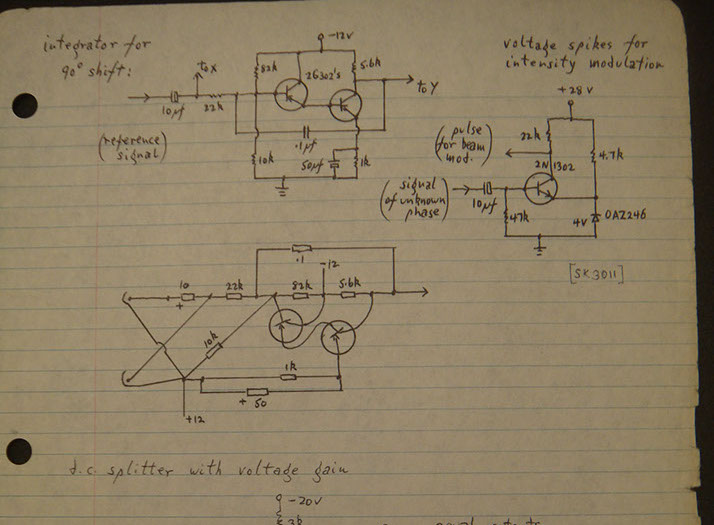 integrator for
90° shift:
to X
82k
-12v
5.6k
2G302's
to Y
10μf
22k
(reference
signal)
.1μf
10k
50μf
1k
voltage spikes for
intensity modulation
+28v
22k
(pulse
for beam
mod.)
2N1302
4.7k
(signal
of unknown
phase)
10μf
47k
4v
OAZ246
[SK3011]
.1
-12
10
+
22k
82k
5.6k
10k
1k
+ 50
+12
d.c. splitter with voltage gain
-20v